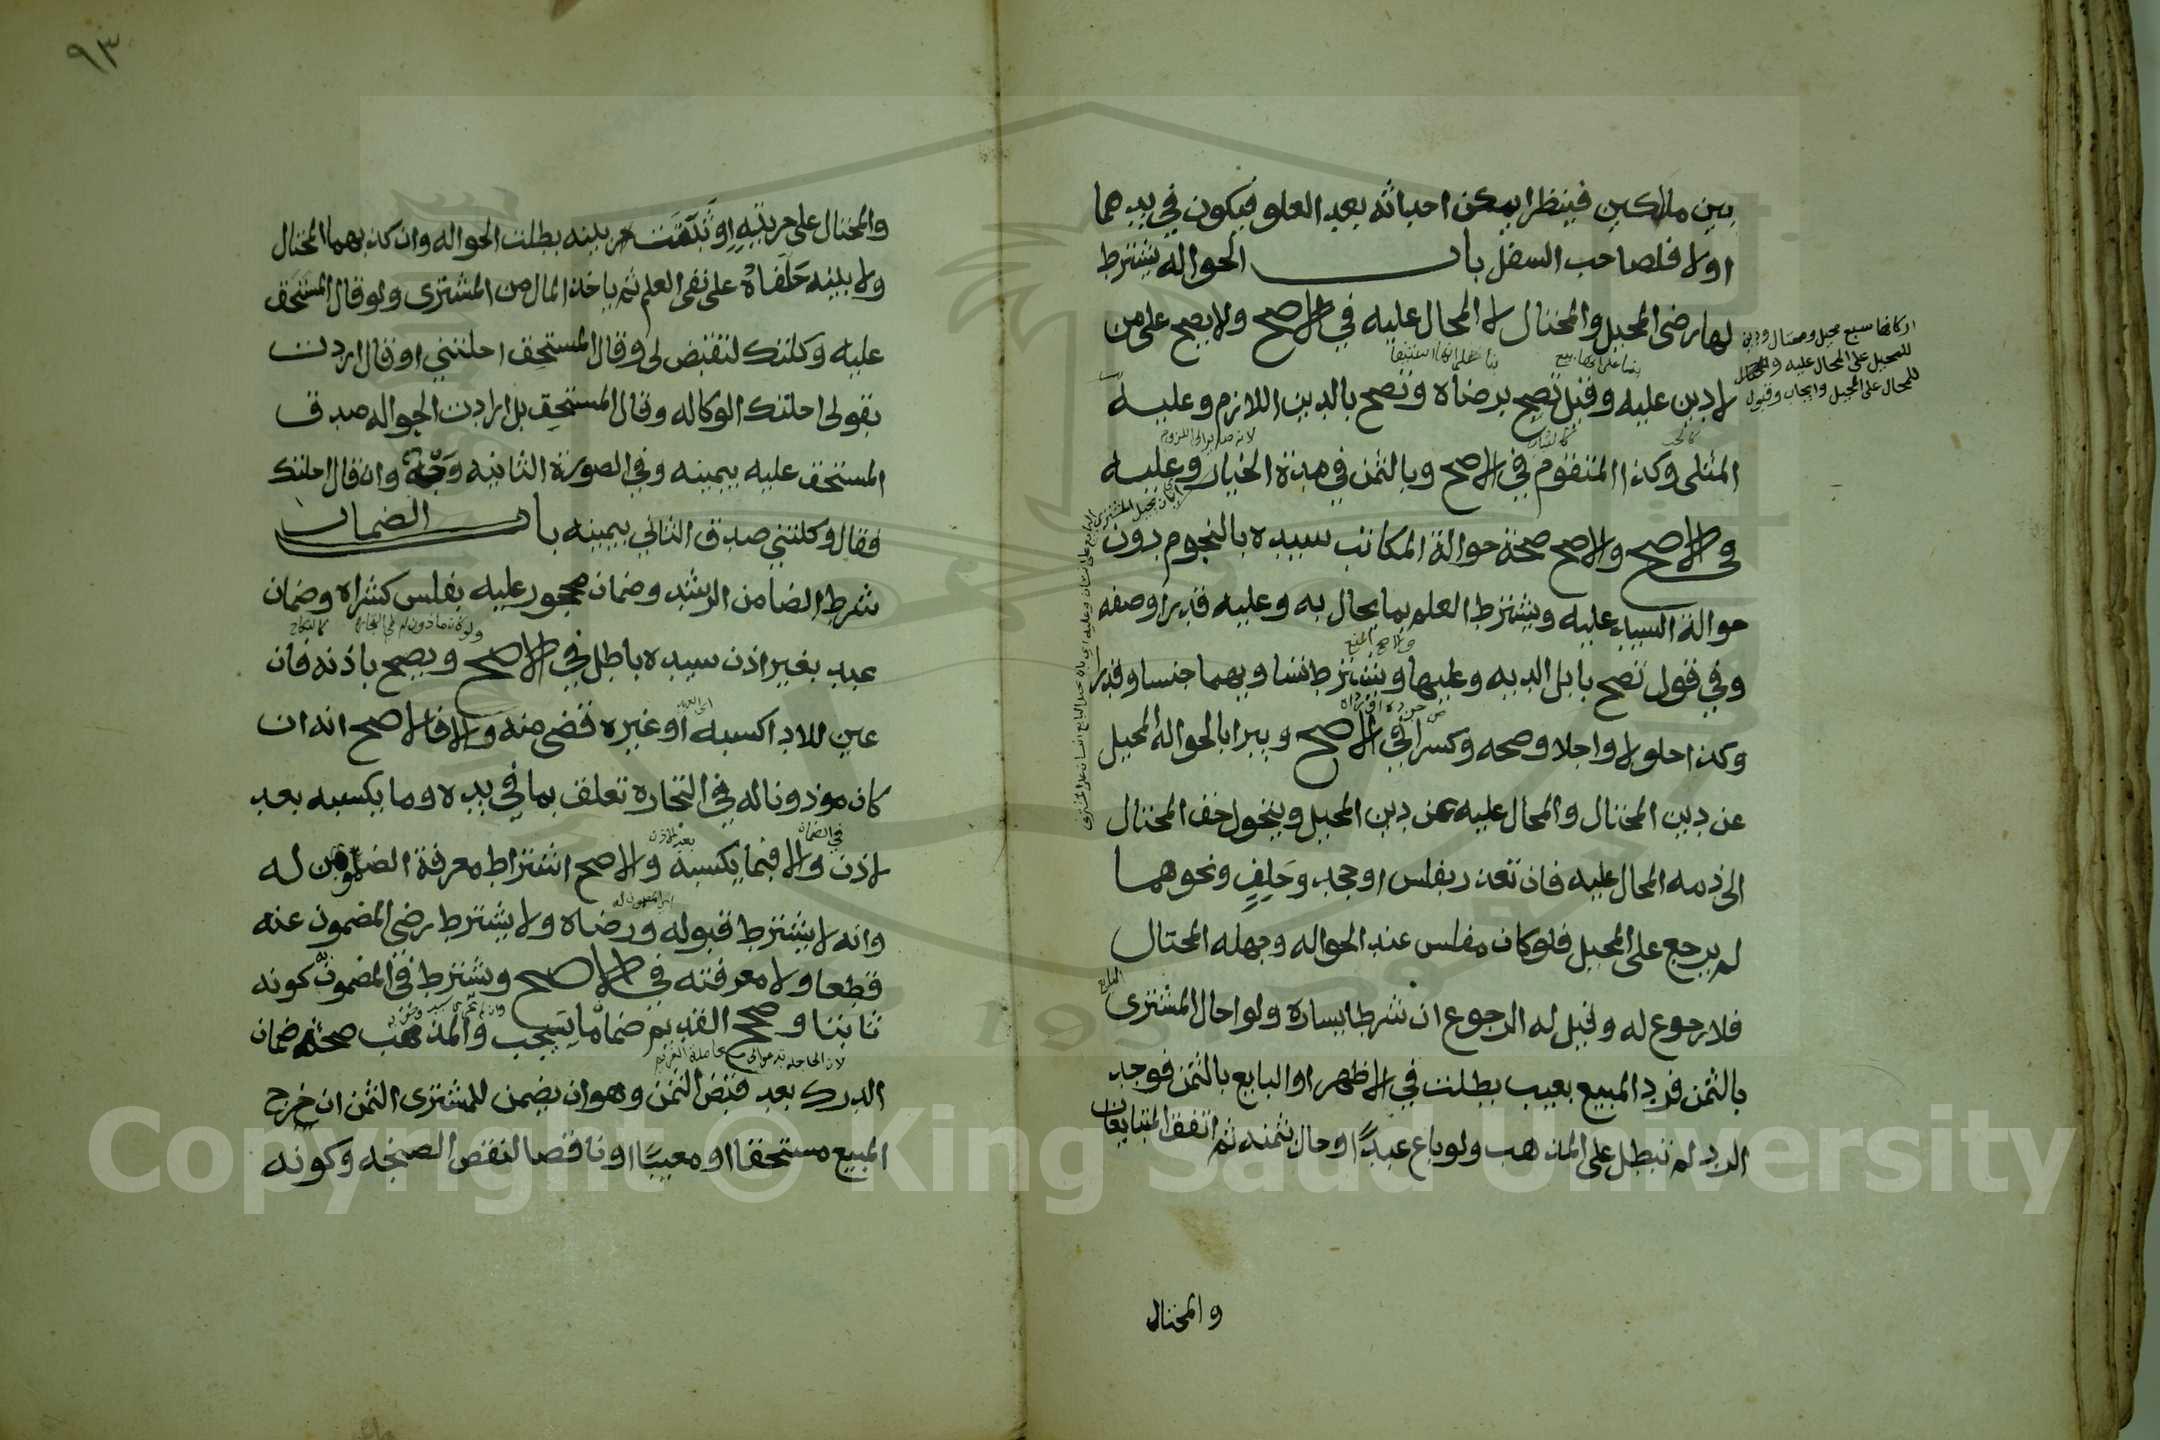 بين مالكين فينظر ايمكن احداثه بعد العلو فيكون في يدهما
اولا فلصاحب السفل باب الحواله يشترط
لها رضى المحيل والمحتال لا المحال عليه في الاصح ولا يصح على من
لا دين عليه وقيل تصح برضاه وتصح بالدين اللازم وعليه
المثلى وكذا المتقوم في الاصح وبالثمن في مدة الخيار وعليه
في الاصح والاصح صحة حوالة المكاتب سيده بالنجوم دون
حوالة السيد عليه ويشترط العلم بما يحال به وعليه قدرا وصفه
وفي قول تصح بابل الديه وعليها ويشترط تساويهما جنسا وقدرا
وكذا حلولا واجلا وصحه وكسرا في الاصح ويبرا بالحواله المحيل
عن دين المحتال والمحال عليه عن دين المحيل ويتحول حق المحتال
الى ذمه المحال عليه فان تعذر بفلس او جحد وحلف ونحوهما
لم يرجع على المحيل فلو كان مفلس عند الحواله وجهله المحتال
فلا رجوع له وقيل له الرجوع ان شرط يساره ولو احال المشترى
بالثمن فرد المبيع بعيب بطلت في الاظهر او البايع بالثمن فوجد
الرد لم تبطل على المذهب ولو باع عبدًا وحال بثمنه ثم اتفق المتبايعان
والمحتال
اركانها سبع محيل ومحتال ودين
للمحيل على المحال عليه
للمحال على المحيل وايجاب وقبول
بناء على انها بيع
بناء على انها استيفا
والاصح المنع
البايع
٩٣
والمحتال على حريته او ثبتت ببينه بطلت الحواله وان كذبهما المحتال
ولا بينه حلفاه على نفى العلم ثم ياخذ المال من المشترى ولو قال المستحق
عليه وكلتك لتقبض لى وقال المستحق احلتني او قال اردت
بقولى احلتك الوكاله وقال المستحق بل اردت الحواله صدق
المستحق عليه بيمينه وفي الصورة الثانيه وجه وان قال احلتك
فقال وكلتني صدق الثاني بيمينه باب الضمان
شرط الضامن الرشد وضمان محجور عليه بفلس كشراه وضمان
عبد بغير اذن سيده باطل في الاصح ويصح باذنه فان
عين للادا كسبه او غيره قضى منه والا فالاصح انه ان
كان موذونا له في التجاره تعلق بما في يده وما يكسبه بعد
لاذن والا فبما يكسبه والاصح اشتراط معرفة المضمون له
وانه لا يشترط قبوله ورضاه ولا يشترط رضى المضمون عنه
قطعا ولا معرفته في الاصح ويشترط في المضمون كونه
ثابتا وصحح القديم ضمان ما سيجب والمذهب صحة ضمان
الدرك بعد قبض الثمن وهو ان يضمن للمشترى الثمن ان خرج
المبيع مستحقا او معيبًا او ناقصا لنقص الصنجه وكونه
في الضمان
بعد الاذن
Copyright © King Saud University